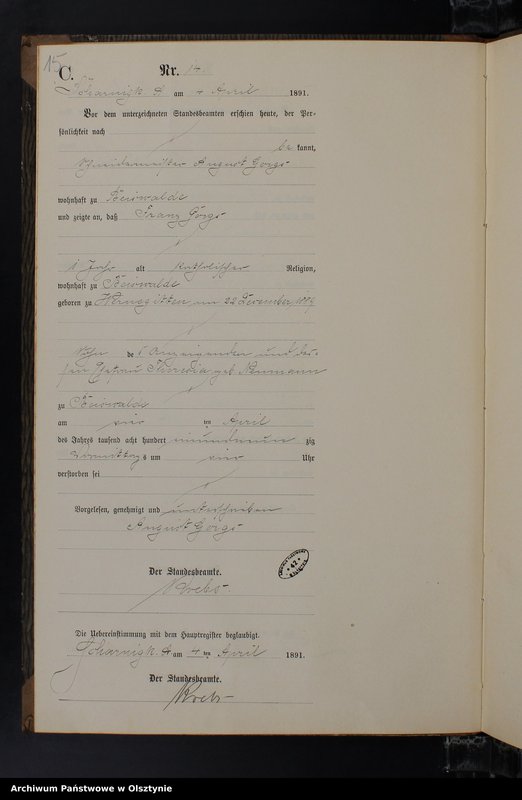 15
C.
Nr. 14.
am 4 April 1891.
Vor dem unterzeichneten Standesbeamten erschien heute, der Per-
sönlichkeit nach
be kannt,
August Görgs
wohnhaft zu Beiswalde
und zeigte an, daß Franz Görgs
1 Jahr alt katholischer Religion,
wohnhaft zu Beiswalde
geboren zu am 22 Dezember 1889
Sohn des Anzeigenden und des-
sen Ehefrau geb. Neumann
zu Beiswalde
am vier ten April
des Jahres tausend acht hundert einundneun zig
Vormittags um vier Uhr
verstorben sei
Vorgelesen, genehmigt und unterschrieben
August Görgs
Der Standesbeamte.
Krebs
Die Uebereinstimmung mit dem Hauptregister beglaubigt.
am 4 ten April 1891.
Der Standesbeamte.
Krebs
Archiwum Państwowe w Olsztynie